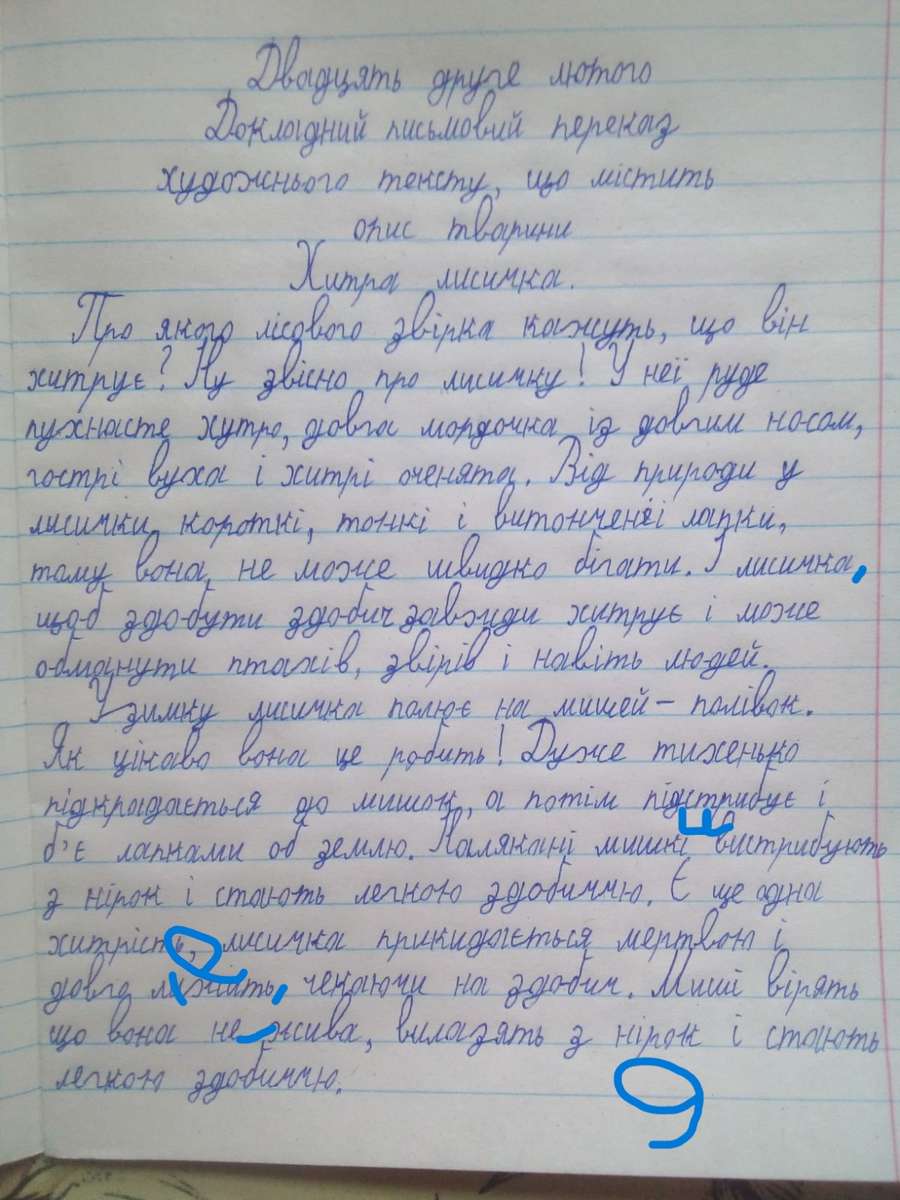 Двадцять друге лютого
Докладний письмовий переказ
художнього тексту, що містить
опис тварини
Хитра лисичка.
Про якого лісового звірка кажуть, що він
хитрує? Ну звісно про лисичку! У неї руде
пухнасте хутро, довга мордочка із довгим носом,
гострі вуха і хитрі оченята. Від природи у
лисички короткі, тонкі і витончені лапки,
тому вона не може швидко бігати. І лисичка,
щоб здобути здобич завжди хитрує і може
обманути птахів, звірів і навіть людей.
Узимку лисичка полює на мишей – полівок.
Як цікаво вона це робить! Дуже тихенько
підкрадається до мишок, а потім підстрибує і
б'є лапками об землю. Налякані мишкі вистрибують
з нірок і стають легкою здобиччю. Є ще одна
хитрість, лисичка прикидається мертвою і
довго лежить, чекаючи на здобич. Миші вірять
що вона не жива, вилазять з нірок і стають
легкою здобиччю.
9